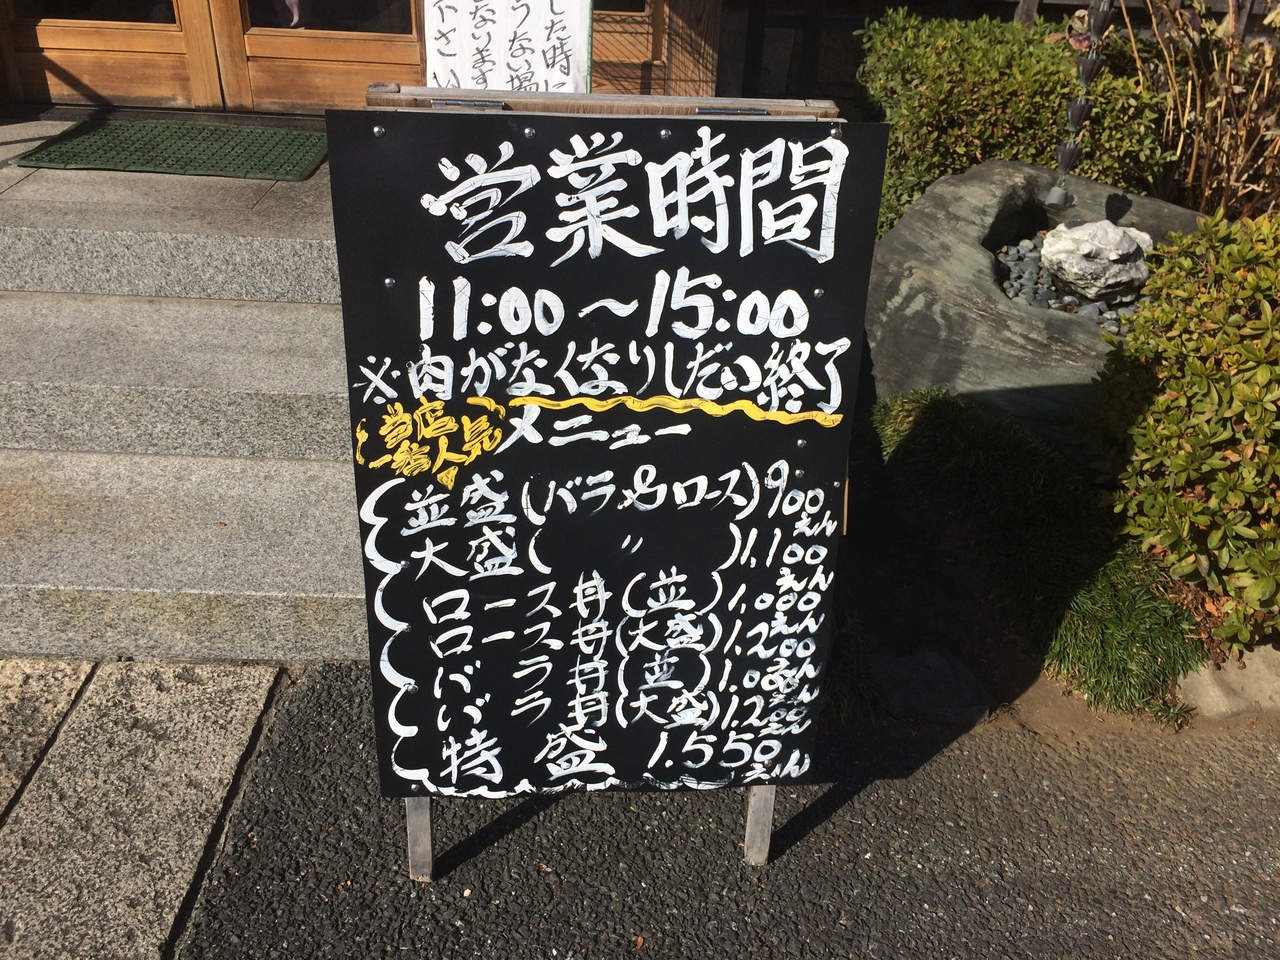 した時に
うない場
ないます
下さい
営業時間
11:00〜15:00
※肉がなくなりしだい終了
当店
一番人気
メニュー
並盛(バラ&ロース)900えん
大盛(〃)1,100えん
ロース丼(並)1,000えん
ロース丼(大盛)1,200えん
バラ丼(並)1,000えん
バラ丼(大盛)1,200えん
特盛 1,550えん